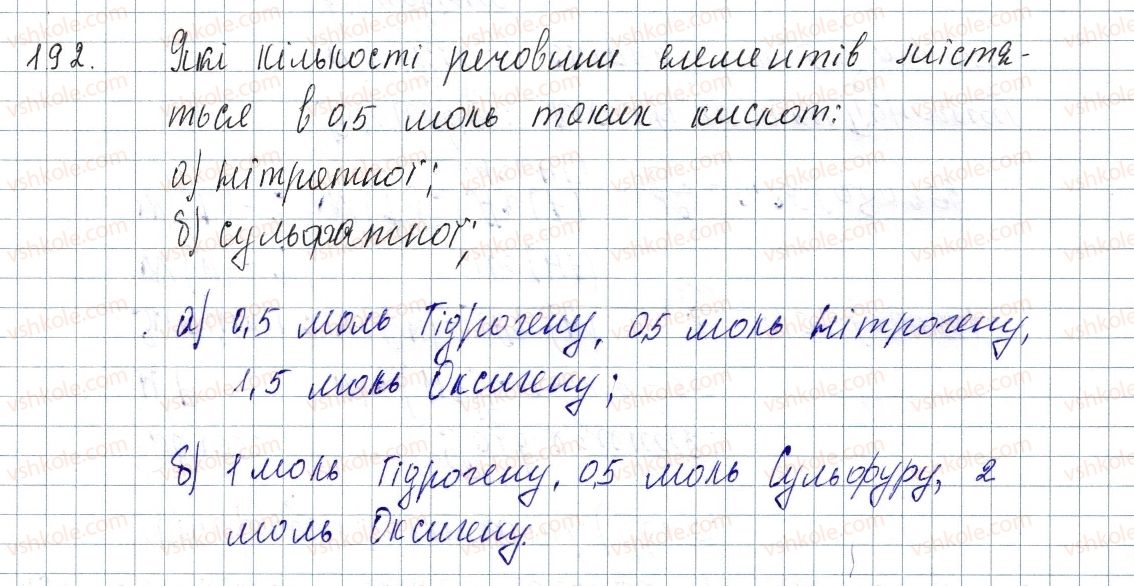 192. Які кількості речовини елементів містя-
ться в 0,5 моль таких кислот:
а) нітратної;
б) сульфатної;
а) 0,5 моль Гідрогену, 0,5 моль Нітрогену,
1,5 моль Оксигену;
б) 1 моль Гідрогену, 0,5 моль Сульфуру, 2
моль Оксигену.